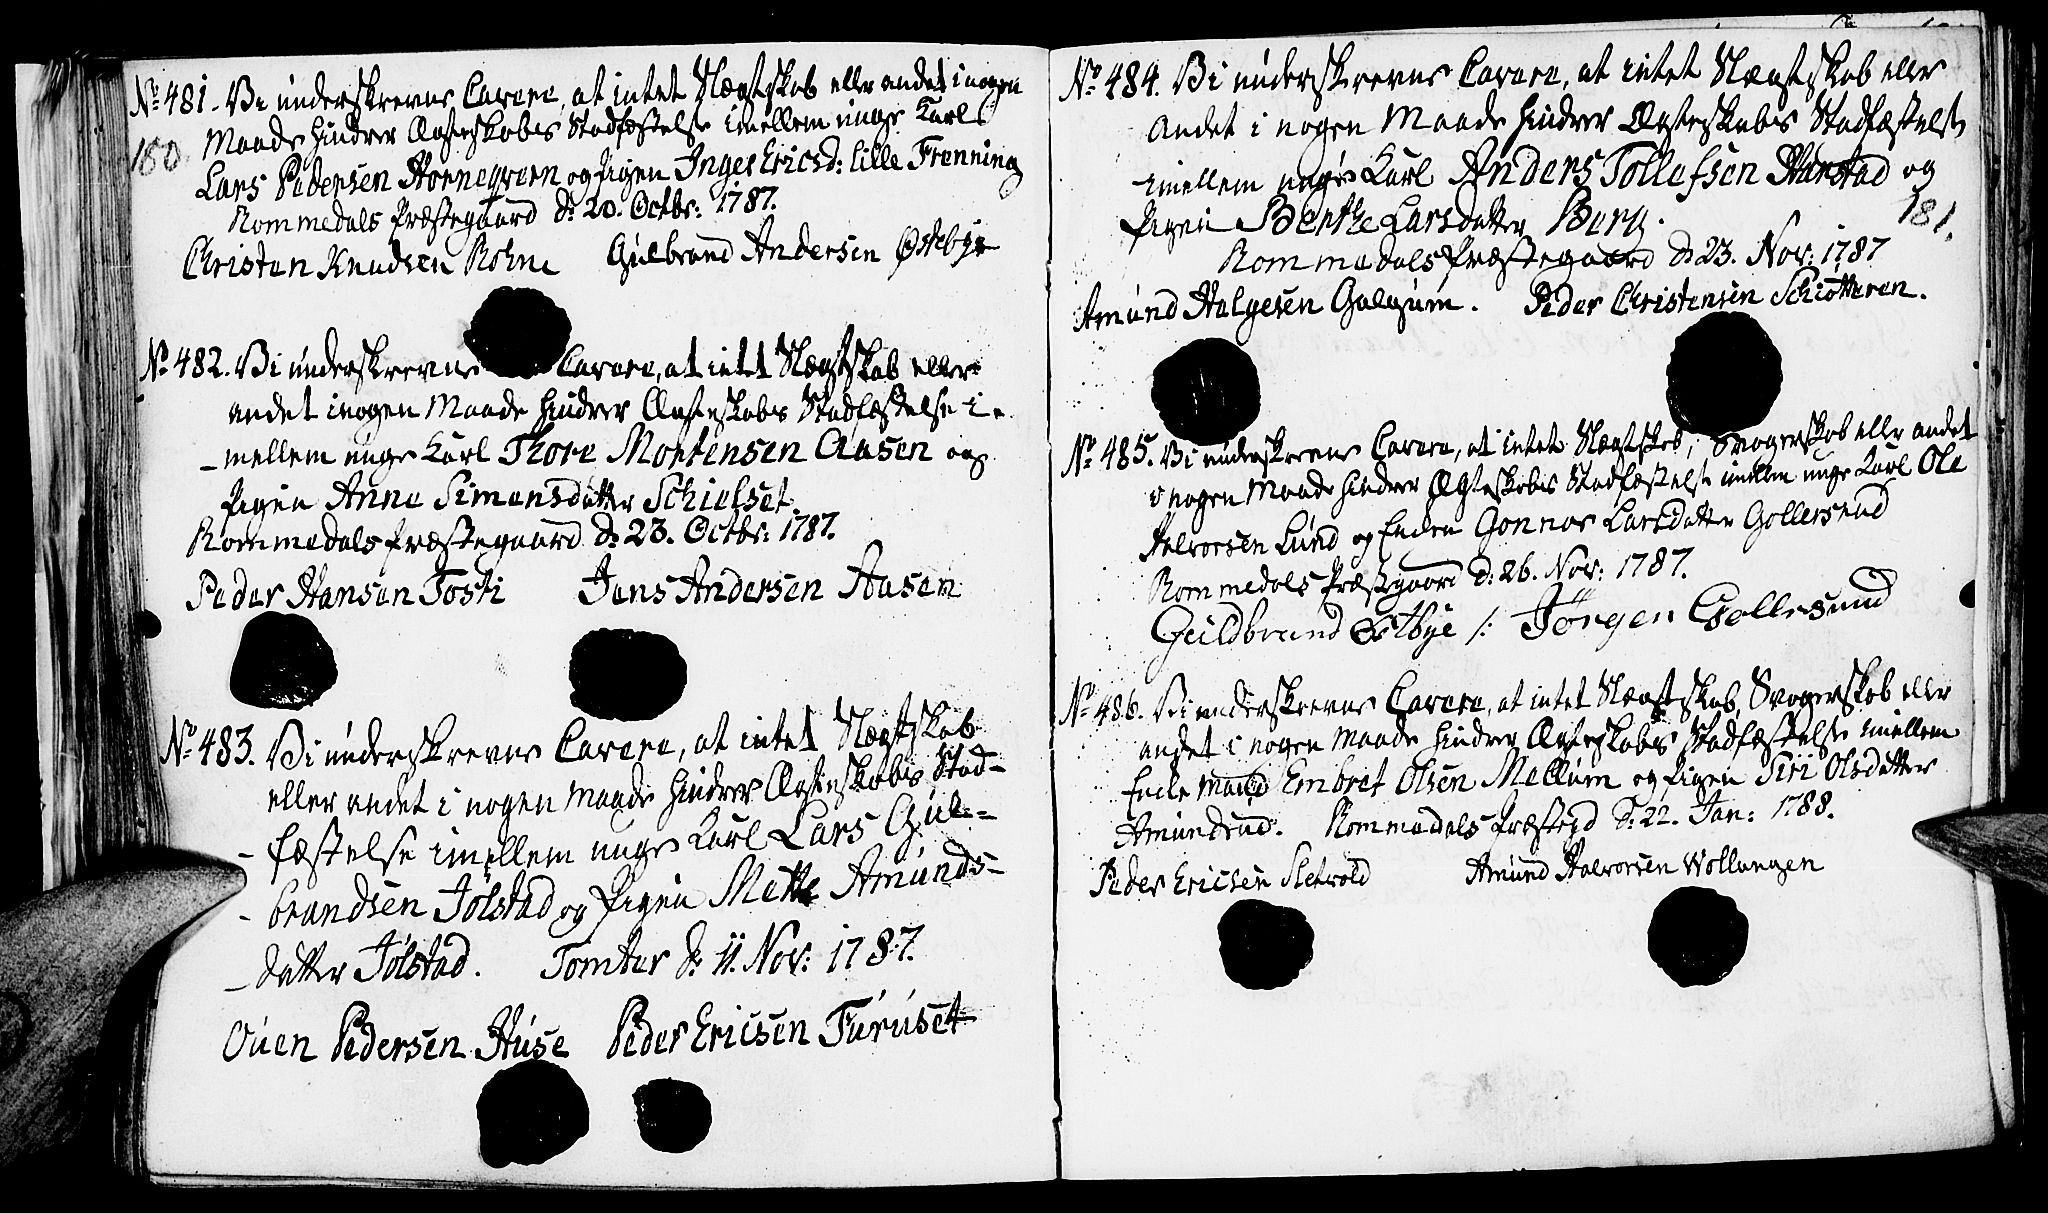 No 481. Vi underskrevne Cavere, at intet Slægtskab eller andet i nogen
180.
Maade hindrer Ægteskabs Stadfæstelse imellem unge Karl
Lars Pedersen Horneqvern og Pigen Inger Ericsd: lille Frenning
Rommedals Præstegaard d: 20. Octbr: 1787.
Christen Knudsen Rohne Gulbrand Andersen Østebye
No 482. Vi underskrevne Cavere, at intet Slægtskab eller
andet i nogen Maade hindrer Ægteskabs Stadfæstelse i-
-mellem unge Karl Thore Mortensen Aasen og
Pigen Anne Simensdatter Schielset.
Rommedals Præstegaard d: 23. Octbr: 1787.
Peder Hansen Tosti Jens Andersen Aasen
No 483. Vi underskrevne Cavere, at intet Slægtskab
eller andet i nogen Maade hindrer Ægteskabs Stad-
-fæstelse imellem unge Karl Lars Gul-
-brandsen Jølstad og Pigen Mette Amunds-
-datter Jølstad. Tomter d: 11. Nov: 1787.
Ouen Pedersen Huse Peder Ericsen Furuset
No 484. Vi underskrevne Cavere, at intet Slægtskab eller
andet i nogen Maade hindrer Ægteskabs Stadfæstelse
imellem unge Karl Anders Tollefsen Harstad og
181.
Pigen Berthe Larsdatter Berg.
Rommedals Præstegaard d: 23. Nov: 1787
Amund Halgesen Galgum. Peder Christensen Schiøtteren.
No 485. Vi underskrevne Cavere, at intet Slægtskab, Svogerskab eller andet
i nogen Maade hindrer Ægteskabs Stadfæstelse imellem unge Karl Ole
Halvorsen Lund og Enken Gonnor Larsdatter Gollersrud
Rommedals Præstegaard d: 26. Nov: 1787.
Guldbrand Østbye /: Jörgen Gollersrud
No 486. Vi underskrevne Cavere, at intet Slægtskab, Svogerskab eller
andet i nogen Maade hindrer Ægteskabs Stadfæstelse imellem
Enke Mand Embret Olsen Mellum og Pigen Siri Olsdatter
Amundrud. Rommedals Præstegd d: 22. Jan: 1788.
Peder Ericsen Sletvold Amund Halvorsen Wollungen